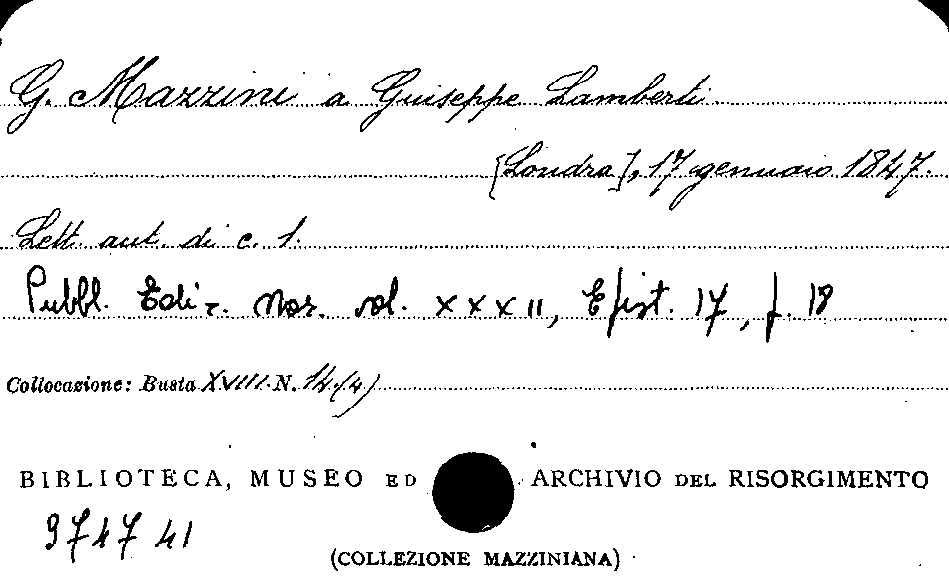 G. Mazzini a Giuseppe Lamberti.
[Londra], 17 gennaio 1847.
Lett. aut. di c. 1.
Pubbl. Ediz. Naz. vol. XXXII, Epist. 17, p. 18
Collocazione: Busta XVIII. N. 14 (4)
BIBLIOTECA, MUSEO ED ARCHIVIO DEL RISORGIMENTO
974741
(COLLEZIONE MAZZINIANA)